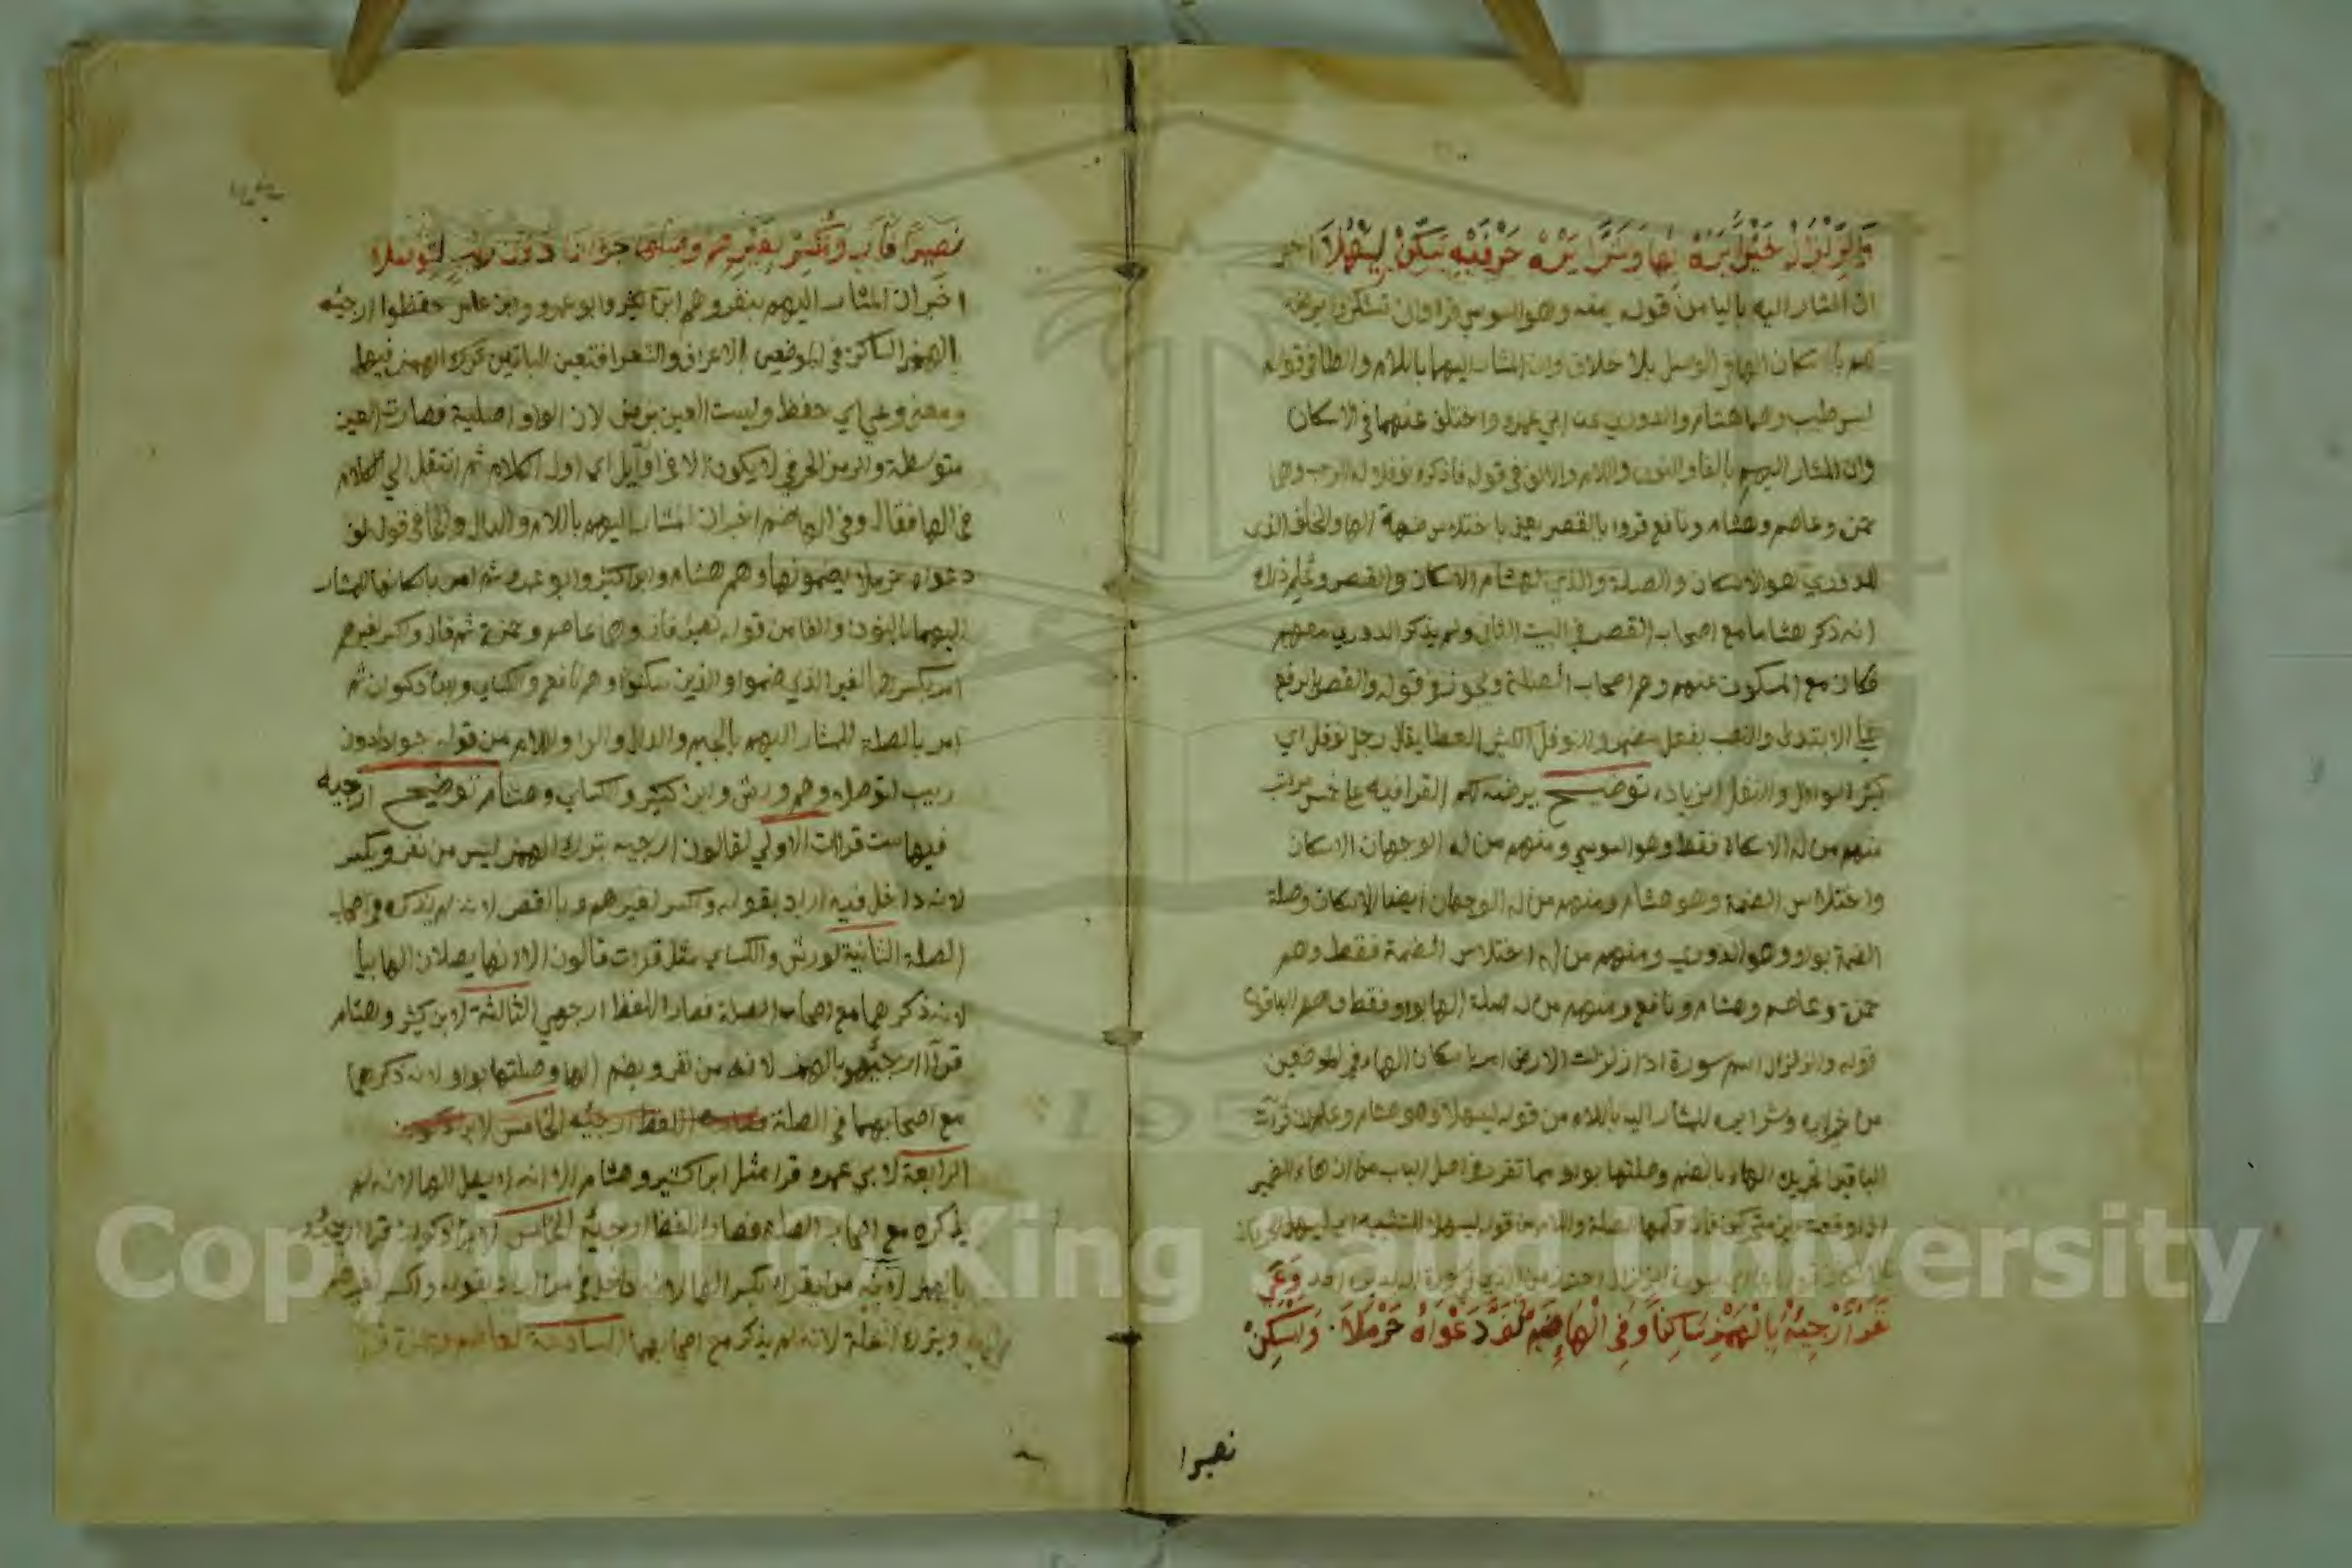 وَالزِّلْزَالُ خَيْرًا يَرَهُ بِهَا وَشَرًّا يَرَهُ حَرْفَيْهِ سَكِّنْ لِيَسْهُلَا اخبر
ان المشار اليه باليا من قوله يمنه وهو السوسي قرا وان تشكروا يرضه
لكم باسكان الها في الوصل بلا خلاف وان المشار اليهما باللام والطا في قوله
لبس طيب وهما هشام والدوري عن ابي عمرو واختلف عنهما في الاسكان
وان المشار اليهم بالفا والنون واللام والالف في قوله فاذكره نوفلا له الرحب وهم
حمزة وعاصم وهشام ونافع قروا بالقصر يعني باختلاس ضمة الها والخلف الذي
للدوري هو الاسكان والصلة والذي لهشام الاسكان والقصر وعلم ذلك
انه ذكر هشاما مع اصحاب القصر في البيت الثاني ولم يذكر الدوري معهم
فكان مع المسكوت عنهم وهم اصحاب الصلة ويجوز في قوله والقصر الرفع
علي الابتدا والنصب بفعل مضمر والنوفل الكثير العطا يقال رجل نوفل اي
كثير النوافل والنفل الزيادة توضيح يرضه لكم القرا فيه علي خمس مراتب
منهم من له الاسكان فقط وهو السوسي ومنهم من له الوجهان الاسكان
واختلاس الضمة وهو هشام ومنهم من له الوجهان ايضا الاسكان وصلة
الضمة بواو وهو الدوري ومنهم من له اختلاس الضمة فقط وهم
حمزة وعاصم وهشام ونافع ومنهم من له صلة الها بواو فقط وهم الباقون
قوله والزلزال اسم سورة اذا زلزلت الارض امر باسكان الهاء في الموضعين
من خيرا يره وشرا يره للمشار اليه باللام من قوله ليسهلا وهو هشام وعلم ان قرآت
الباقين تحريك الهاء بالضم وصلتها بواو مما تقرر في اصل الباب من ان هاء الضمير
اذا وقعت بين متحركين فان حكمها الصلة واللام من قوله ليسهلا
وَعَى
نَفَرٌ أَرْجِئْهُ بِالْهَمْزِ سَاكِنًا وَفِي الْهَاءِ ضَمٌّ لَفَّ دَعْوَاهُ حَرْمَلَا . وَأَسْكِنْ
نصيرا
نَصِيرًا فَازَ وَاكْسِرْ لِغَيْرِهِمْ وَصِلْهَا جَوَادًا دُونَ رَيْبٍ لِتُوصَلَا
اخبر ان المشار اليهم بنفر وهم ابن كثير وابو عمرو وابن عامر حفظوا ارجئه
بالهمز الساكن في الموضعين بالاعراف والشعرا فتعين للباقين ترك الهمز فيهما
ومعنى وعي اي حفظ وليست العين برمز لان الواو اصلية فصارت العين
متوسطة والرمز الحرفي لا يكون الا في اوايل اي اول الكلام ثم انتقل الي الكلام
في الها فقال وفي الها ضم اخبر ان المشار اليهم باللام والدال والحا في قوله لف
دعواه حرملا يضمونها وهم هشام وابن كثير وابو عمرو ثم امر باسكانها للمشار
اليهما بالنون والفا من قوله نصيرا فاز وهما عاصم وحمزة ثم قال واكسر لغيرهم
امر بكسرها لغير الذي ضموا والذين سكنوا وهم نافع والكساي وابن ذكوان ثم
امر بالصلة للمشار اليهم بالجيم والدال والرا واللام من قوله جوادا دون
ريب لتوصلا وهم ورش وابن كثير والكساي وهشام توضيح ارجيه
فيها ست قرات الاولي لقالون ارجيه بترك الهمز ليس من نفر وبكسر
لانه داخل فيه اراد بقوله واكسر لغيرهم وبالقصر لانه لم يذكره في اصحاب
الصلة الثانية لورش والكساي مثل قرات قالون الا انهما يصلان الها بيا
لانه ذكرهما مع اصحاب الصلة فصار اللفظ ارجهي الثالثة لابن كثير وهشام
قرآ ارجئهو بالهمز لانه من نفر وبضم الها وصلتها بواو لانه ذكرهما
مع اصحابهما في الصلة فصار اللفظ ارجئه الخامس لابن ذكوان
الرابعة لابي عمرو قرا مثل ابن كثير وهشام الا انه لا يصل الها لانه لم
يذكره مع اصحاب الصلة فصار اللفظ ارجئه الخامس لابن ذكوان قرا ارجئه
بالهمز لانه من نفر بكسر الها لانه داخل في من اراد بقوله واكسر لغيرهم
وبترك الصلة لانه لم يذكر مع اصحابهما السادسة لعاصم وحمزة
Copyright © King Saud University
195